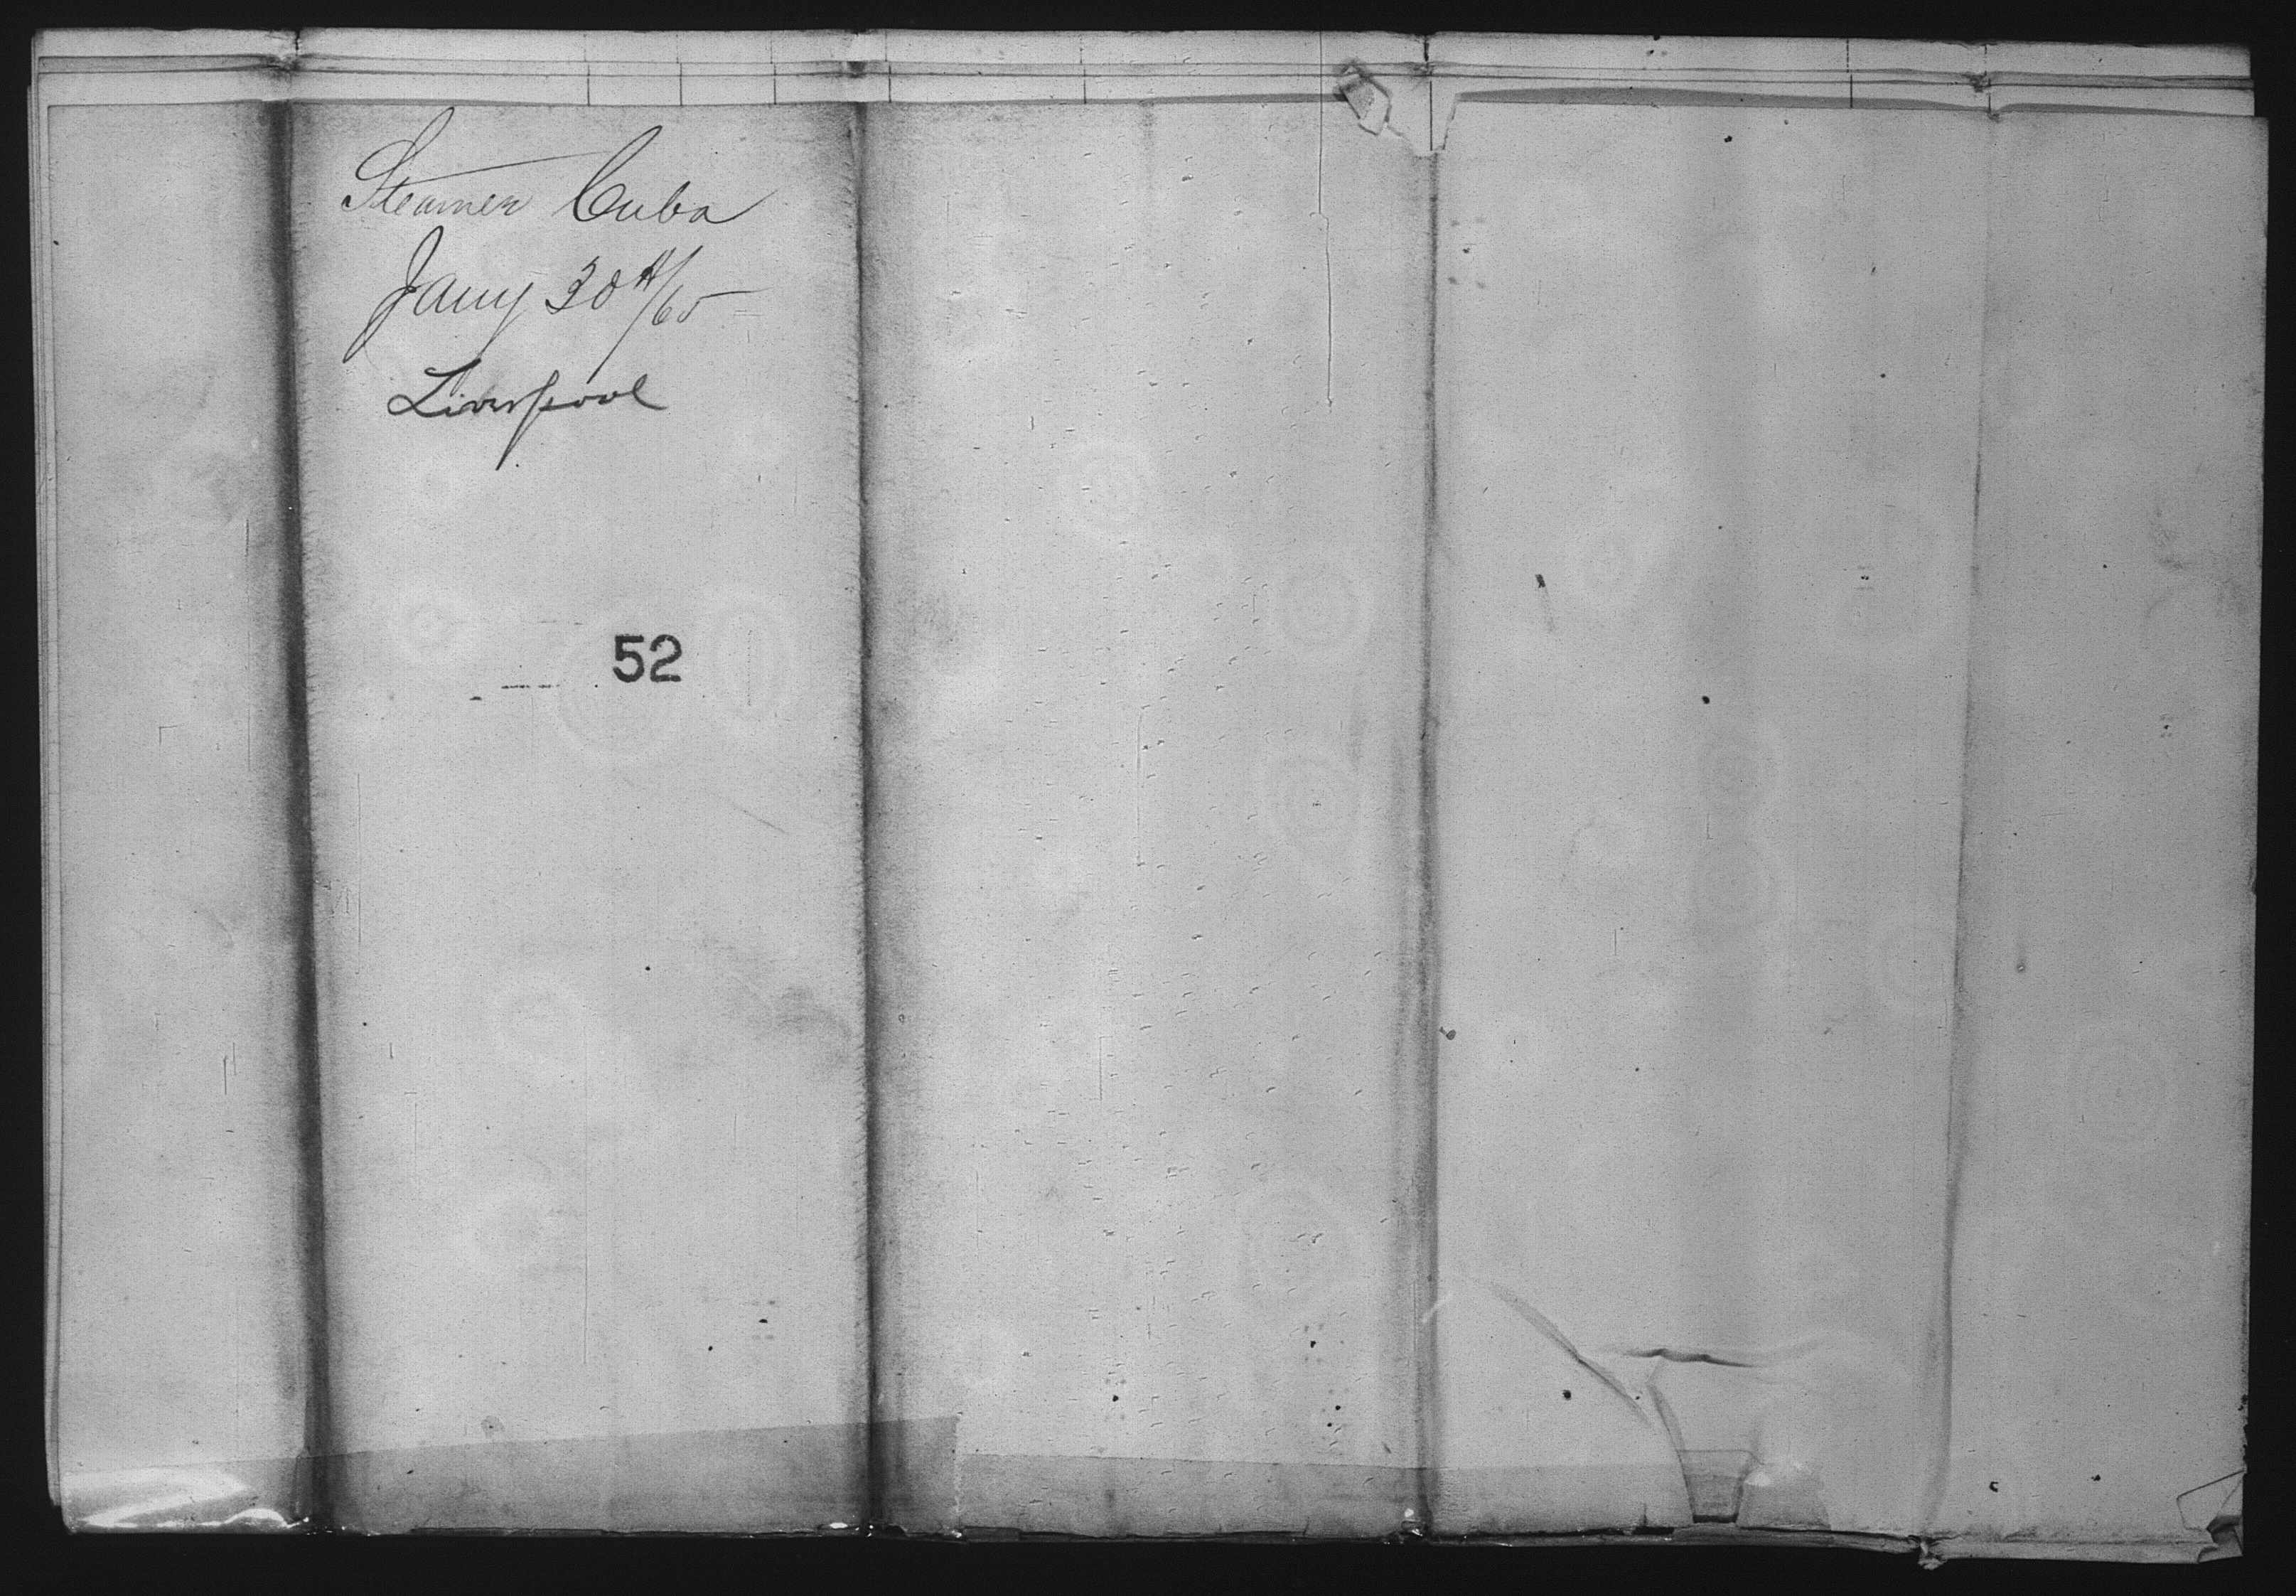 Steamer Cuba
Jany 30th/65
Liverpool
52